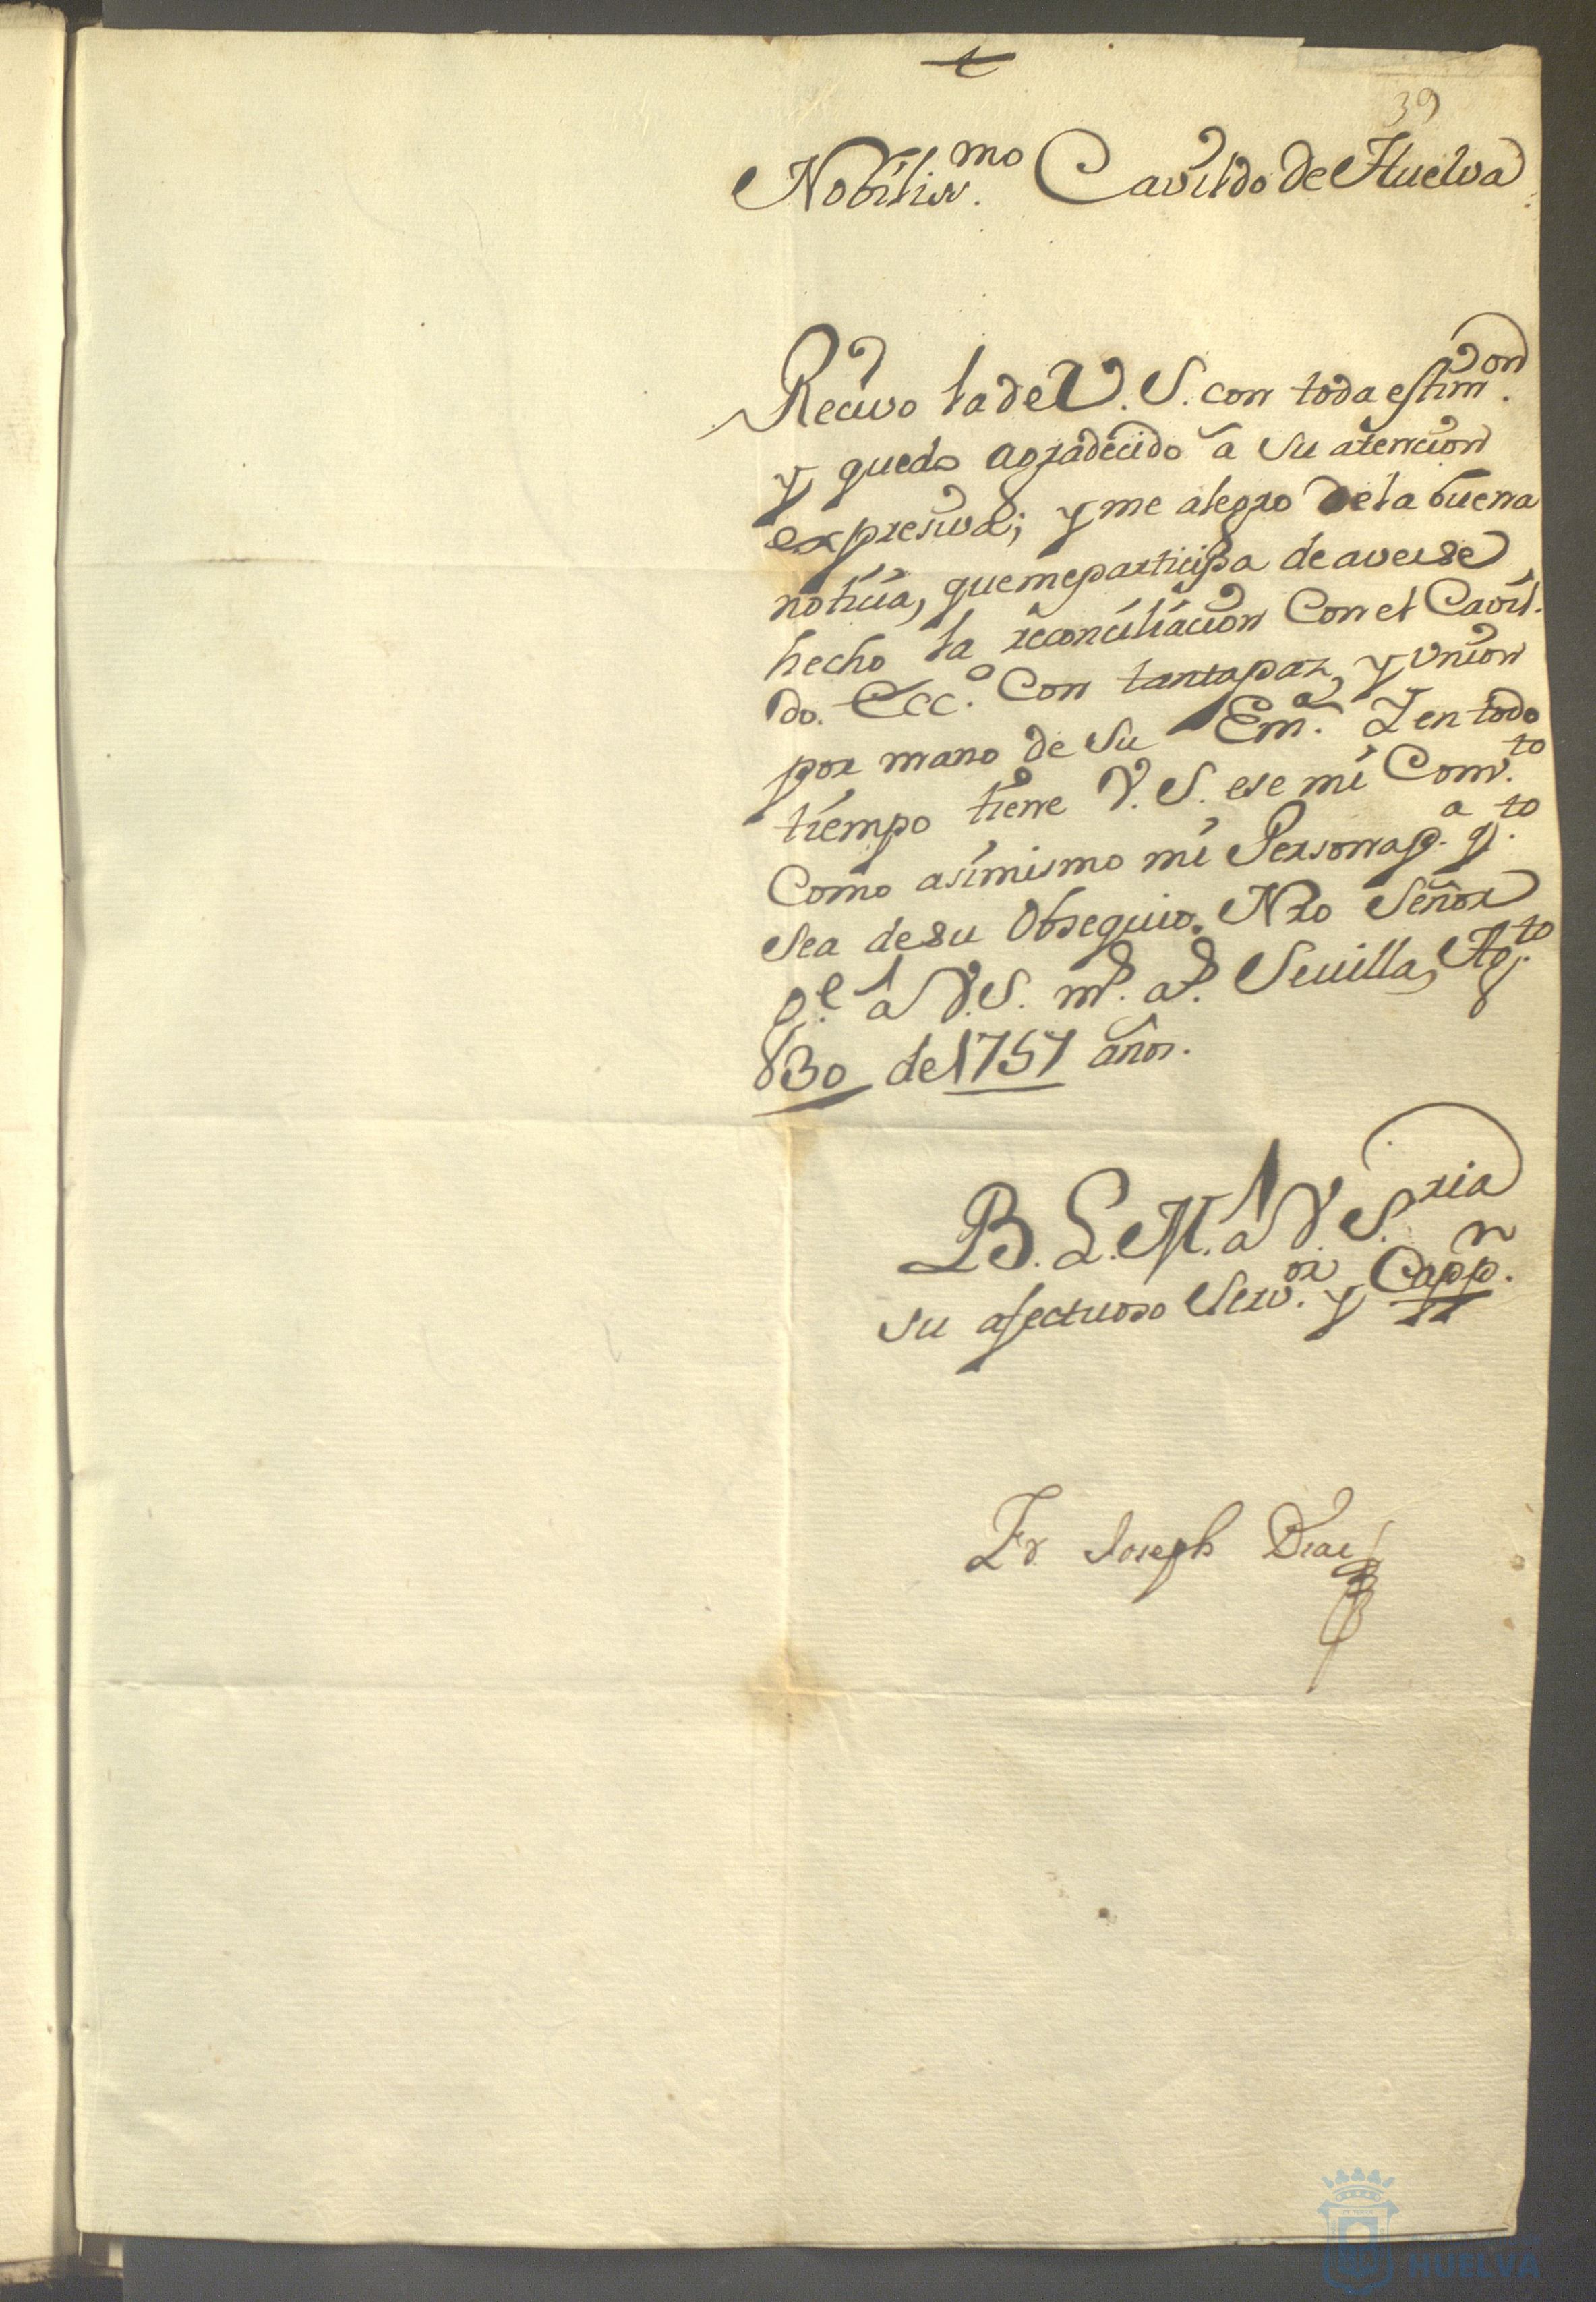 39
Nobiliss.mo Cavildo de Huelva
Recivo la de V. S. con toda estim.on
y quedo agradecido a su atencion
expresiva; y me alegro de la buena
noticia, que me participa de averse
hecho la reconciliacion Con el Cavil-
do. Ecc.o Con tanta paz, y union
por mano de su Em.a Y en todo
tiempo tiene V. S. ese mi Conv.to
Como asimismo mi Persona p.a q.to
sea de su Obsequio. Nro Señor
g.e a V. S. m.s a.s Sevilla, Ag.to
30 de 1757 años.
B. L. M. a V. S.ria
su afectuoso Serv.or y Capp.n
Fr. Joseph Diaz
HUELVA